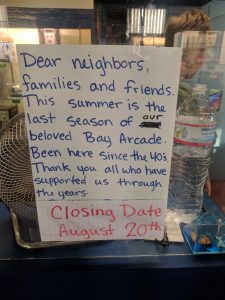 Dear neighbors,
families and friends.
This summer is the
last season of our
beloved Bay Arcade.
Been here since the 40's.
Thank you all who have
supported us through
the years.
Closing Date
August 20th